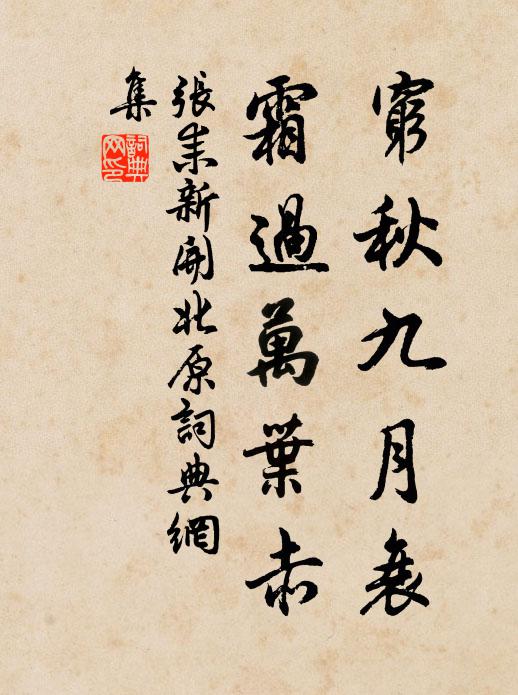 窮秋九月衰
霜過萬葉赤
張耒新開北原詞典網
集
詞典網印